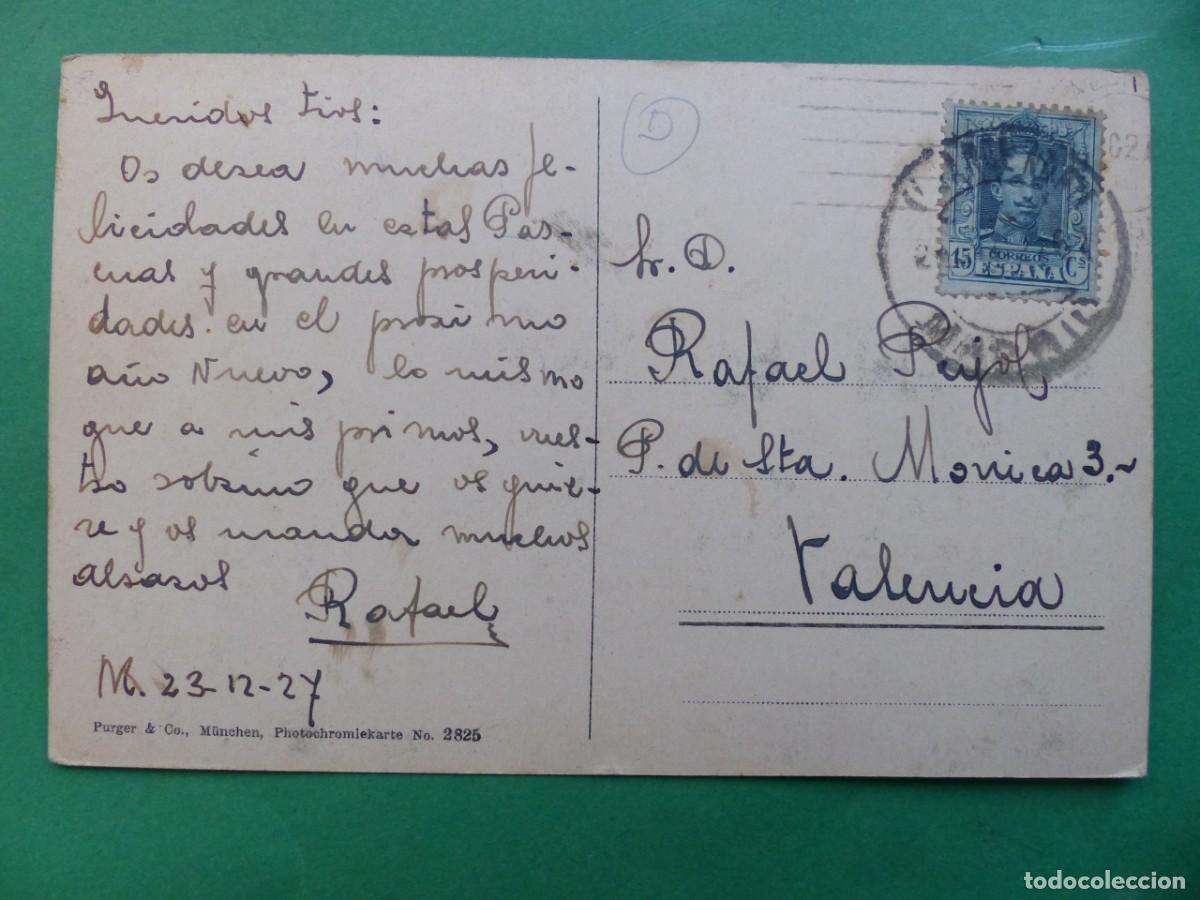 Queridos tios:
Os desea muchas fe-
licidades en estas Pas-
cuas y grandes prosperi-
dades en el proximo
año Nuevo, lo mismo
que a mis primos, vues-
tro sobrino que os quie-
re y os manda muchos
abrazos
Rafael
M. 23-12-27
Purger & Co., München, Photochromiekarte No. 2825
D
15 CORREOS Cs
ESPAÑA
MADRID
Sr. D.
Rafael Pujol,
P. de Sta. Monica 3.~
Valencia
todocoleccion